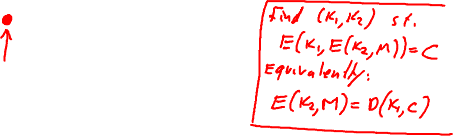 find (K₁,K₂) s.t.
E(K₁,E(K₂,M))=C
Equivalently:
E(K₂,M)=D(K₁,C)